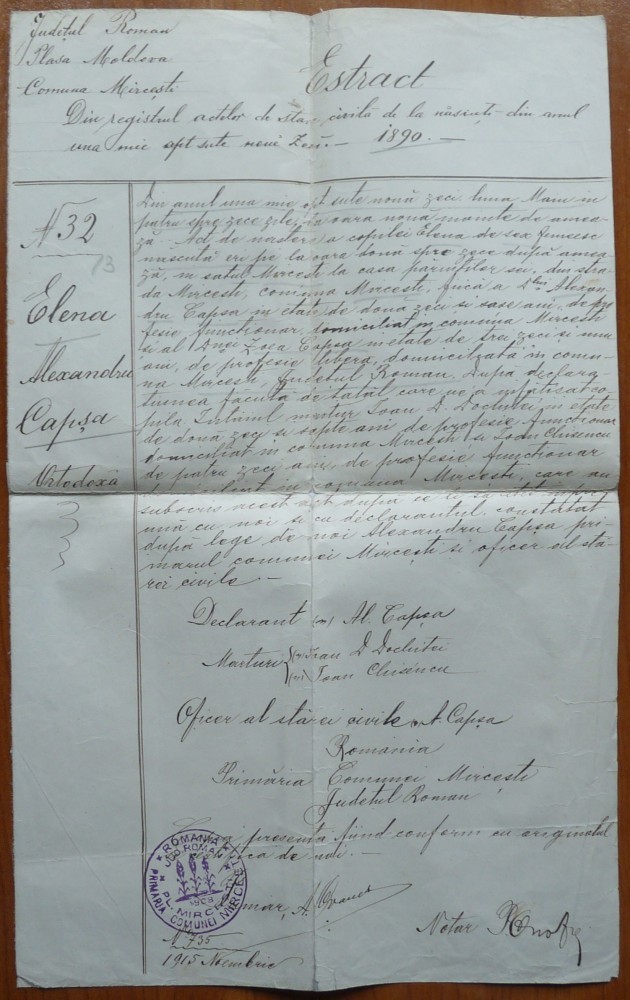 Județul Roman
Plasa Moldova
Comuna Mircești
Estract
Din registrul actelor de stare civilă de la născuți din anul
una mie opt sute nouă zeci. — 1890. —
N 32
13
Elena
Alexandru
Capșa
Ortodoxă
Din anul una mie opt sute nouă zeci luna Maiu in
patru spre zece zile, la oara noua de amea-
ză. Act de nastere a copilei Elena de sex femeesc
născută eri pe la oara două spre zece după amea
ză, in satul Mircesti la casa părinților sei, din stra-
da Mircesti, comuna Mircesti, fiică a Alexan-
dru Capsa in etate de două zeci si sase ani, de pro
fesie functionar, domiciliat in comuna Mircesti
si al Dnei Zoea Capsa in etate de trei zeci si unu
ani, de profesie libera, domiciliată in comu-
na Mircesti, Judetul Roman. După declara-
tiunea facută de tatăl care ne a infătisat co
pila. Intăiul martur Ioan D. Dochitei in etate
de două zeci si sapte ani de profesie functionar
domiciliat in comuna Mircesti si Ioan Chisencu
de patru zeci ani, de profesie functionar
in comuna Mircesti, care au
subscris acest act după ce li sa citit
ună cu noi si cu declarantul constatat
după lege de noi Alexandru Capșa pri-
marul comunei Mircești si oficer al stă-
rei civile —
Declarant (ss) Al. Capșa
Marturi (ss) Ioan D Dochitei
(ss) Ioan Chisencu
Oficer al stărei civile ss A Capșa
România
Primăria Comunei Mircești
Județul Roman
presentă fiind conform cu originalul
de noi. —
Primar, A.
Notar
ROMANIA
JUD. ROMAN
PL. MIRCEȘTI
1908
PRIMĂRIA COMUNEI MIRCEȘTI
N 735
1915 Noembrie